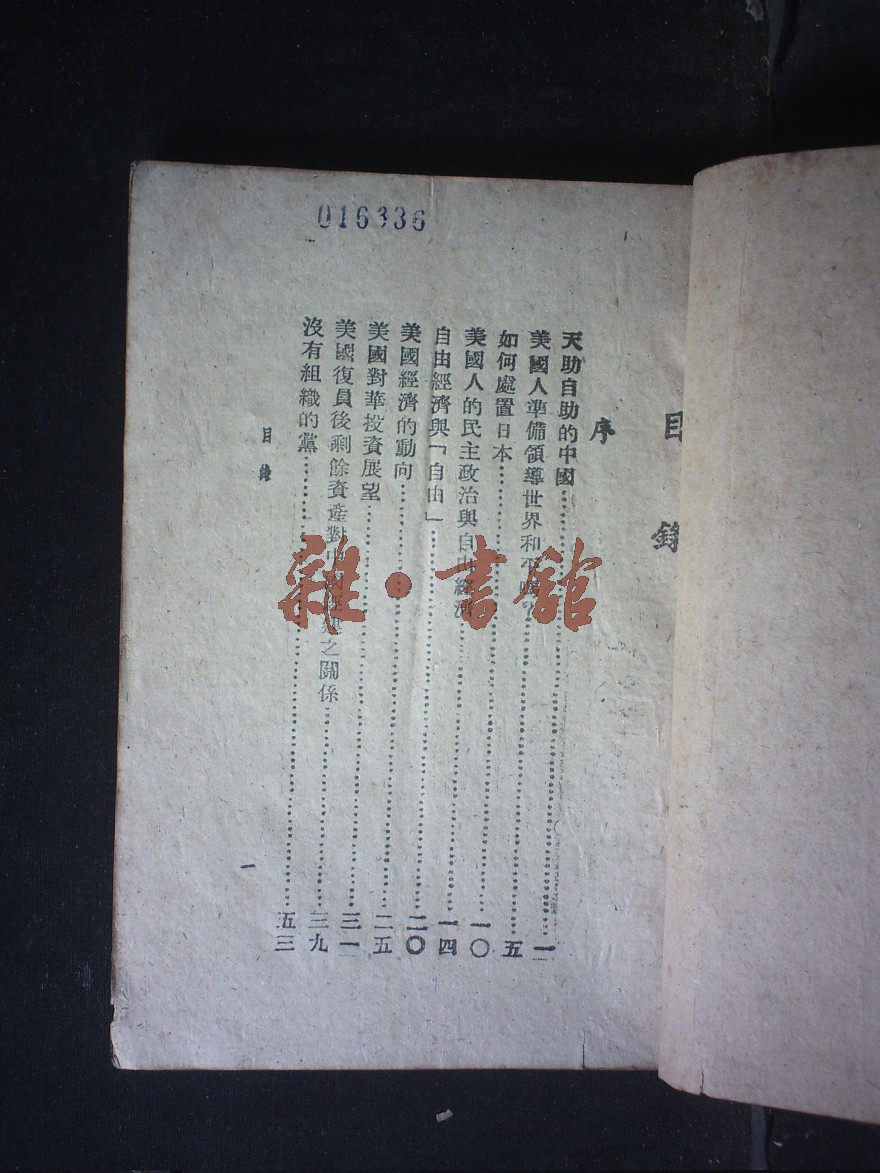 016336
目錄
序
天助自助的中國……一
美國人準備領導世界和平嗎？……五
如何處置日本……一〇
美國人的民主政治與自由經濟……一四
自由經濟與「自由」……二〇
美國經濟的動向……二五
美國對華投資展望……三一
美國復員後剩餘資產對中國之關係……三九
沒有組織的黨……五三
目錄
一
雜·書館